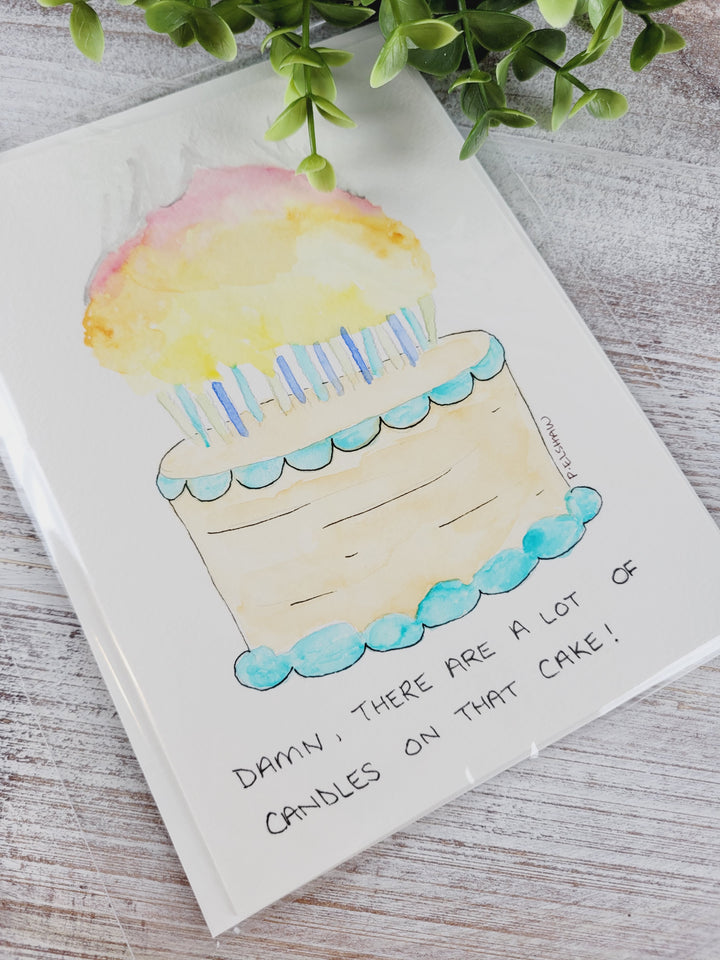 P. ELSHAW
DAMN, THERE ARE A LOT OF
CANDLES ON THAT CAKE!